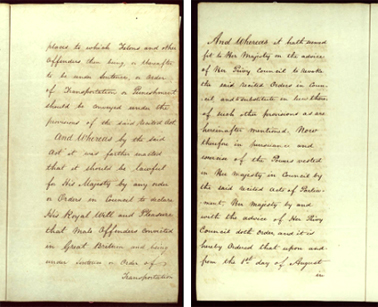 place to which Felons and other
Offenders then being, or thereafter
to be under Sentence, or Order
of Transportation or Banishment
should be conveyed under the
provisions of the said recited Act
And Whereas by the said
Act it was further enacted
that it should be lawful
for His Majesty by any order
or Orders in Council to declare
His Royal Will and Pleasure
that Male Offenders convicted
in Great Britain and being
under sentence or Order of
Transportation
And Whereas it hath seemed
fit to Her Majesty on the advice
of Her Privy Council to revoke
the said recited Orders in Coun-
cil and substitute in lieu thereof
such other provisions as are
hereinafter mentioned. Now
therefore in pursuance and
exercise of the Powers vested
in Her Majesty in Council by
the said recited Acts of Parlia-
ment. Her Majesty by and
with the advice of Her Privy
Council doth order, and it is
hereby Ordered that upon and
from the 1st day of August
in